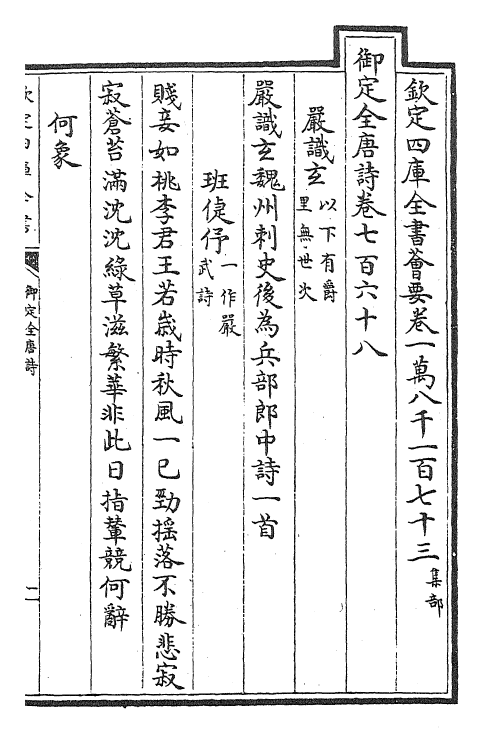 欽定四庫全書薈要卷一萬八千一百七十三 集部
御定全唐詩卷七百六十八
嚴識玄 以下有爵
里無世次
嚴識玄魏州刺史後為兵部郎中詩一首
班倢伃 一作嚴
武詩
賤妾如桃李君王若歲時秋風一已勁摇落不勝悲寂
寂蒼苔滿沈沈綠草滋繁華非此日指輦競何辭
何象
御定全唐詩